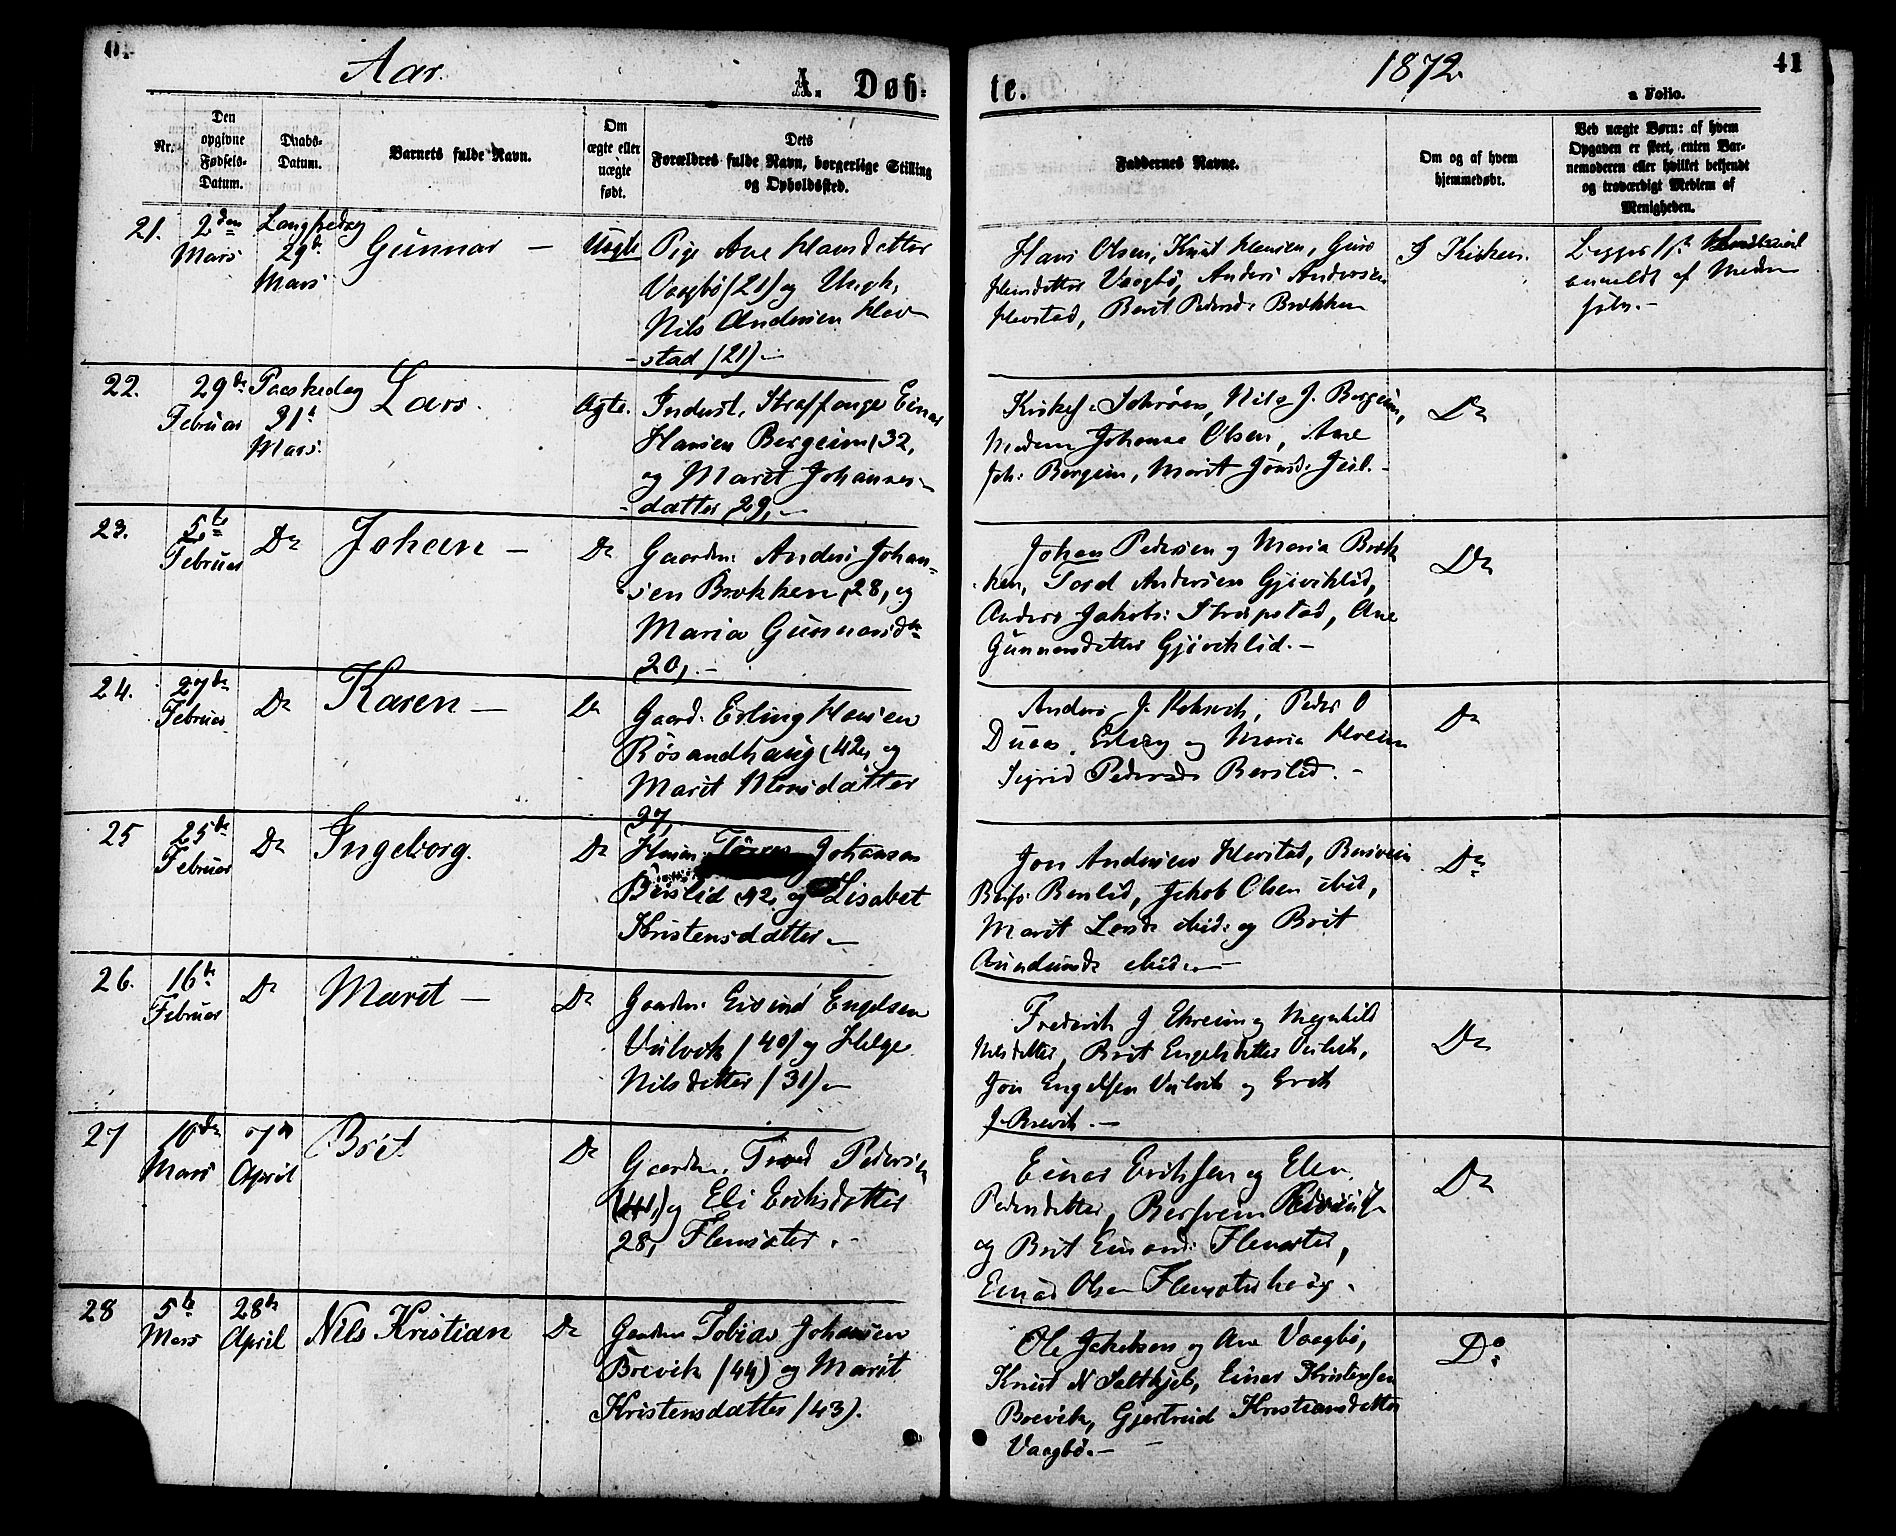 Aar
A. Døb-
te.
1872
41
a Folio.
Nr.
Den
opgivne
Fødsels-
Datum.
Daabs-
Datum.
Barnets fulde Navn.
Om
ægte eller
uægte
født.
Dets
Forældres fulde Navn, borgerlige Stilling
og Opholdssted.
Faddernes Navne.
Om og af hvem
hjemmedøbt.
Ved uægte Børn: af hvem
Opgaven er skeet, enten Bar-
nemoderen eller hvilket bekjendt
og troværdigt Medlem af
Menigheden.
21.
2den
Mars
Langfredag
29d
Mars
Gunnar —
Uægte
Pige Ane Hansdatter
Vaagbø (21) og Ungk.
Nils Andersen Hav-
stad (21) —
Hans Olsen, Knut Hansen, Guro
Hansdatter Vaagbø, Anders Andersen
Havstad, Berit Pedersd. Brokken
I Kirken.
anmeldt af Moderen
selv. —
22.
29de
Februar
Paaskedag
31t
Mars
Lars.
Ægte.
Inderst, Straffange Einar
Hansen Bergeim (32,
og Marit Johannes-
datter, 29, —
Nils J. Bergeim,
Madam Johanna Olsen, Ane
Joh: Bergeim, Marit Jonsd.
Do
23.
5te
Februar
Do
Johan —
Do
Gaardm: Anders Johan-
sen Brokken, 28, og
Maria Gunnarsdtr
20, . —
Johan Pedersen og Maria Brok-
ken, Tord Andersen Gjøviklid,
Anders Jakobs: Ane
Gunnarsdatter Gjøviklid. —
Do
24.
27de
Februar
Do
Karen —
Do
Gaard. Erling Hansen
Røsandhaug (42, og
Marit Monsdatter
37,
Anders J. Peder O
Erling og Maria
Sigrid Pedersd. Berslid. —
Do
25
25de
Februar
Do
Ingeborg.
Do
Johansen
Berslid 42, og Lisabet
Kristensdatter —
Jon Andersen Havstad, Bersvein
Berslid, Jakob Olsen ibid,
Marit Larsd. ibid: og Brit
Amundsd. ibid. —
Do
26.
16de
Februar
Do
Marit —
Do
Gaardm. Eivind Engelsen
Vulvik (40) og Helge
Nilsdatter (31) —
Frederik J. og Magnhild
Nilsdatter, Brit Engelsdatter Vulvik,
Jon Engelsen Vulvik og Erik
J. Brevik. —
Do
27
10de
Mars
7de
April
Brit
Do
Gaardm. Trond Pedersen
(41) og Eli Eriksdatter
28, Flemsæter. —
Einar Eriksen og Elen
Pedersdatter, Bersvein
og Brit Einarsd: Flemsæter,
Einar Olsen Flemsæterhaug.
Do
28
5te
Mars
28de
April
Nils Kristian
Do
Gaardm Tobias Johansen
Brevik (44) og Marit
Kristensdatter (43).
Ole Jakobsen og Ane Vaagbø,
Knut N Saltkjel, Einar Kristensen
Brevik, Gjertrud Kristiansdatter
Vaagbø. —
Do